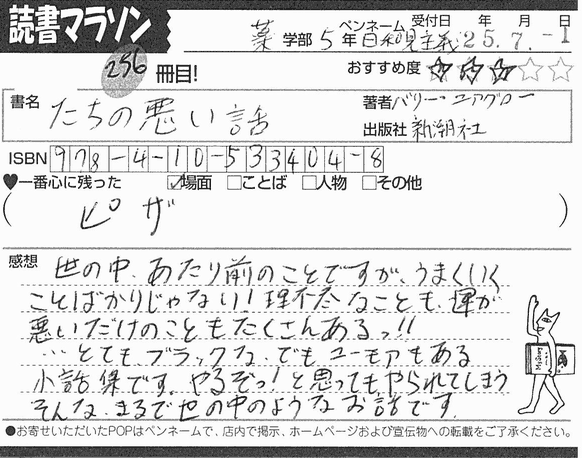 読書マラソン
256 冊目!
ペンネーム 受付日 年 月 日
薬 学部 5 年 日和見主義 25.7.-1
おすすめ度 ★★★☆☆
書名 たちの悪い話
著者 バリー・ユアグロー
出版社 新潮社
ISBN 978-4-10-533404-8
♥一番心に残った ☑場面 □ことば □人物 □その他
( ピザ )
感想 世の中、あたり前のことですが、うまくいく
ことばかりじゃない!理不尽なことも、運が
悪いだけのこともたくさんあるっ!!
…とてもブラックな、でもユーモアもある
小話集です。やるぞっ!と思ってもやられてしまう
そんな、まるで世の中のようなお話です。
●お寄せいただいたPOPはペンネームで、店内で掲示、ホームページおよび宣伝物への転載をご了承ください。